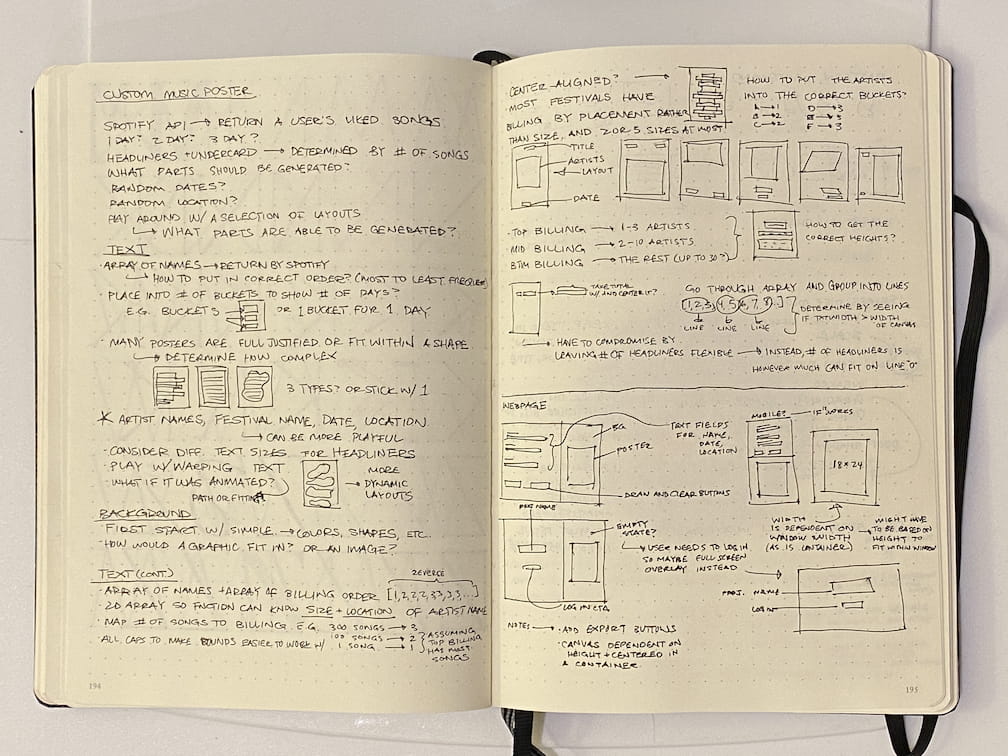 CUSTOM MUSIC POSTER
SPOTIFY API → RETURN A USER'S LIKED SONGS
1 DAY? 2 DAY? 3 DAY?
HEADLINERS + UNDERCARD → DETERMINED BY # OF SONGS
WHAT PARTS SHOULD BE GENERATED?
RANDOM DATES?
RANDOM LOCATION?
PLAY AROUND W/ A SELECTION OF LAYOUTS
↳ WHAT PARTS ARE ABLE TO BE GENERATED?
TEXT
• ARRAY OF NAMES → RETURN BY SPOTIFY
↳ HOW TO PUT IN CORRECT ORDER? (MOST TO LEAST FREQUENT)
• PLACE INTO # OF BUCKETS TO SHOW # OF DAYS?
E.G. BUCKETS OR 1 BUCKET FOR 1 DAY
• MANY POSTERS ARE FULL JUSTIFIED OR FIT WITHIN A SHAPE
↳ DETERMINE HOW COMPLEX
3 TYPES? OR STICK W/ 1
* ARTIST NAMES, FESTIVAL NAME, DATE, LOCATION
↳ CAN BE MORE PLAYFUL
• CONSIDER DIFF. TEXT SIZES FOR HEADLINERS
• PLAY W/ WARPING TEXT
• WHAT IF IT WAS ANIMATED?
PATH OR FITTING
MORE
→ DYNAMIC
LAYOUTS
BACKGROUND
• FIRST START W/ SIMPLE → COLORS, SHAPES, ETC.
• HOW WOULD A GRAPHIC FIT IN? OR AN IMAGE?
TEXT (CONT.)
REVERSE
• ARRAY OF NAMES + ARRAY OF BILLING ORDER [1,2,2,2,3,3,3,3...]
• 2D ARRAY SO FNCTION CAN KNOW SIZE + LOCATION OF ARTIST NAME
• MAP # OF SONGS TO BILLING. E.G. 300 SONGS → 3
100 SONGS → 2
1 SONG → 1
ASSUMING
TOP BILLING
HAS MOST
SONGS
• ALL CAPS TO MAKE BOUNDS EASIER TO WORK W/
194
CENTER-ALIGNED?
• MOST FESTIVALS HAVE
BILLING BY PLACEMENT RATHER
THAN SIZE, AND 2 OR 5 SIZES AT MOST
HOW TO PUT THE ARTISTS
INTO THE CORRECT BUCKETS?
A → 1 D → 3
B → 2 E → 3
C → 2 F → 3
TITLE
ARTISTS
LAYOUT
DATE
• TOP BILLING → 1-3 ARTISTS
• MID BILLING → 2-10 ARTISTS
• BTM BILLING → THE REST (UP TO 30?)
HOW TO GET THE
CORRECT HEIGHTS?
TAKE TOTAL
W/ AND CENTER IT?
GO THROUGH ARRAY AND GROUP INTO LINES
[1,2,3, 4,5, 6,7,8...]
LINE LINE LINE
DETERMINE BY SEEING
IF TXTWIDTH > WIDTH
OF CANVAS
↳ HAVE TO COMPROMISE BY
LEAVING # OF HEADLINERS FLEXIBLE → INSTEAD, # OF HEADLINERS IS
HOWEVER MUCH CAN FIT ON LINE "0"
WEBPAGE
BG
POSTER
TEXT FIELDS
FOR NAME,
DATE,
LOCATION
DRAW AND CLEAR BUTTONS
MOBILE? → IF "WORKS
18×24
WIDTH
IS DEPENDENT ON
WINDOW WIDTH
(AS IS CONTAINER)
→ MIGHT HAVE
TO BE BASED ON
HEIGHT TO
FIT WITHIN WINDOW
EMPTY
STATE?
↳ USER NEEDS TO LOG IN,
SO MAYBE FULL SCREEN
OVERLAY INSTEAD
LOG IN CTA
PROJ. NAME
LOG IN
NOTES → • ADD EXPORT BUTTONS
• CANVAS DEPENDENT ON
HEIGHT + CENTERED IN
A CONTAINER
195